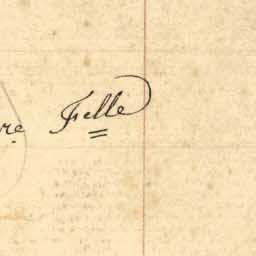 re. Felle